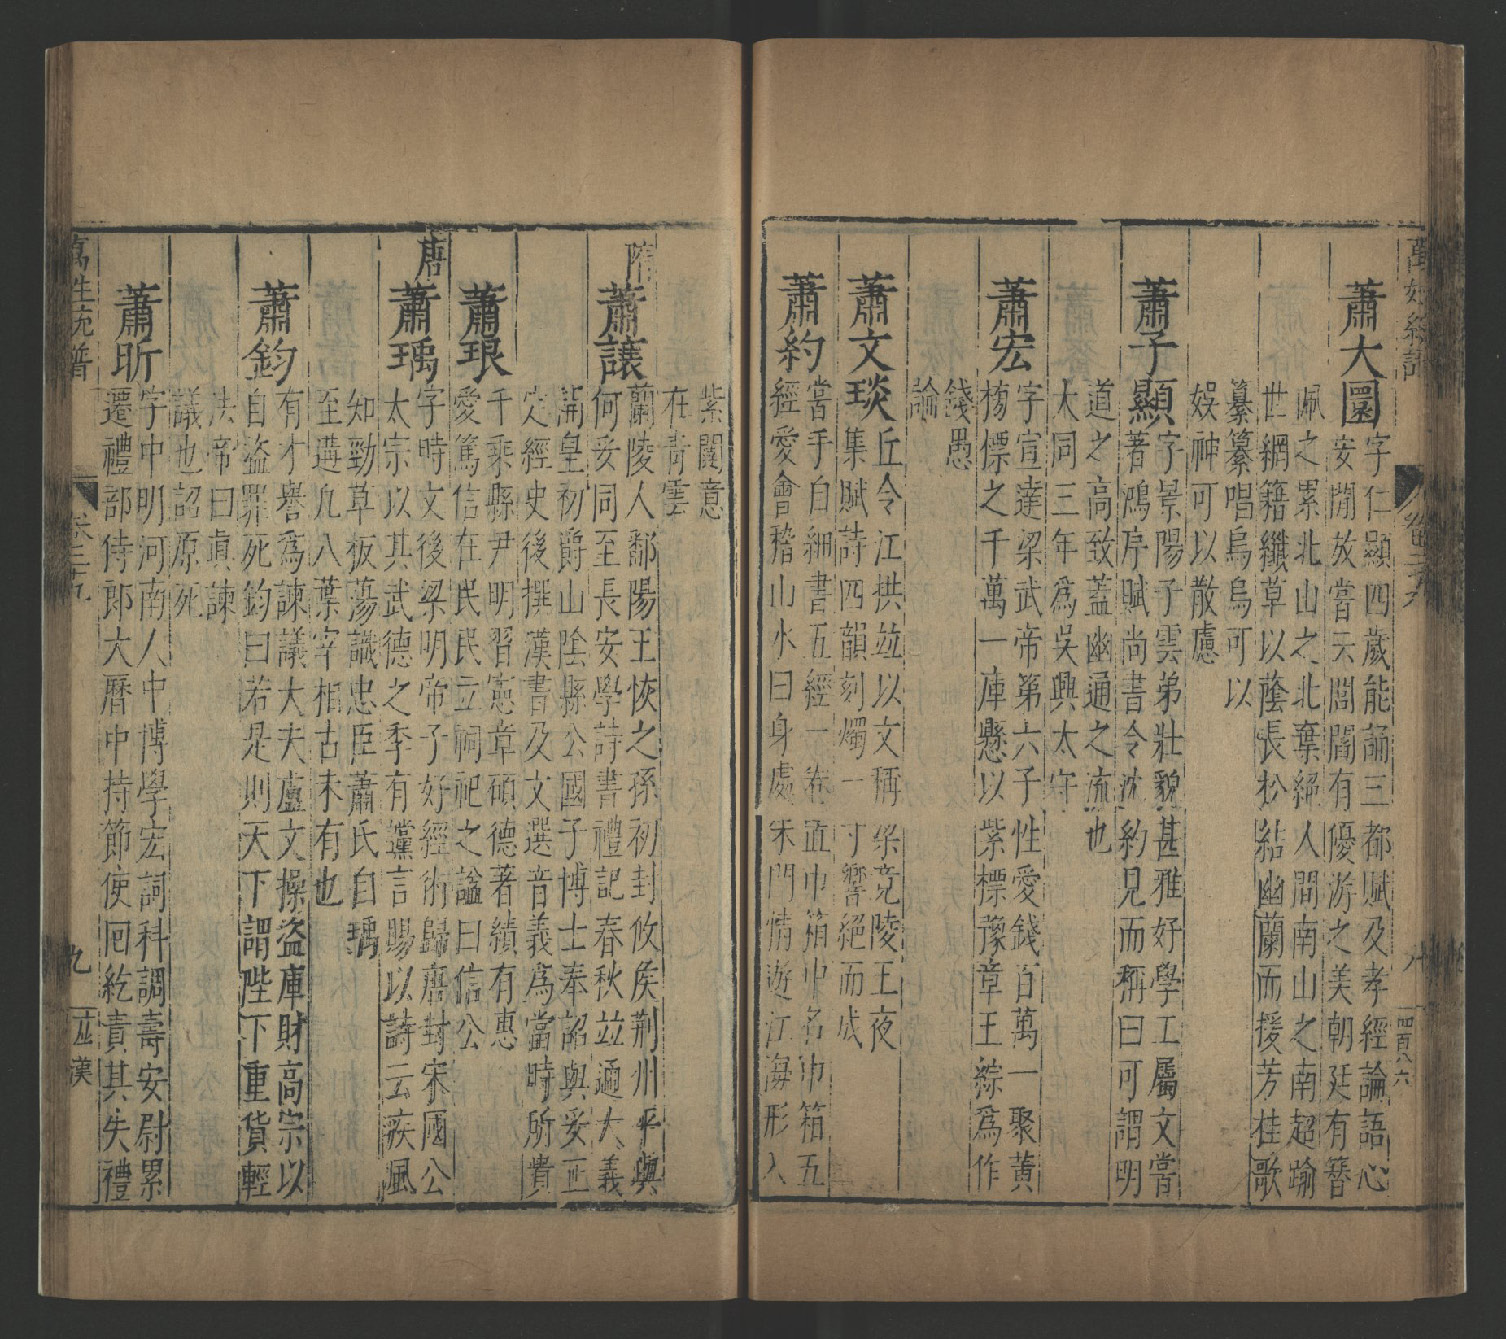 蕭大圜字仁顯四歲能誦三都賦及孝經論語心
安閒放嘗云閭閻有優游之美朝廷有簪
佩之累北山之北棄絕人間南山之南超踰
世網籍纖草以蔭長松結幽蘭而援芳桂歌
纂纂唱烏烏可以
娛神可以散慮
蕭子顯字景陽子雲弟壯貌甚雅好學工屬文嘗
著鴻序賦尚書令沈約見而稱曰可謂明
道之高致蓋幽通之流也
大同三年為吳興太守
蕭宏字宣達梁武帝第六子性愛錢百萬一聚黃
榜標之千萬一庫懸以紫標豫章王綜為作
錢愚
論
蕭文琰丘令江拱竝以文稱梁竟陵王夜
集賦詩四韻刻燭一寸響絕而成
蕭約嘗手自細書五經一卷置巾箱中名巾箱五
經愛會稽山水曰身處朱門情遊江海形入
紫闥意
在青雲
隋
蕭譲蘭陵人鄱陽王恢之孫初封攸侯荊州平與
何妥同至長安學詩書禮記春秋竝通大義
開皇初爵山陰縣公國子博士奉詔與妥正
定經史後撰漢書及文選音義為當時所貴
蕭琅千乘縣尹明習憲章碩德著績有惠
愛篤信在民民立祠祀之謚曰信公
唐
蕭瑀字時文後梁明帝子好經術歸唐封宋國公
太宗以其武德之季有讜言賜以詩云疾風
知勁草板蕩識忠臣蕭氏自瑀
至遘凢八葉宰相古未有也
蕭鈞有才譽為諫議大夫盧文操盜庫財高宗以
自盜罪死鈞曰若是則天下謂陛下重貨輕
法帝曰真諫
議也詔原死
蕭昕字中明河南人中博學宏詞科調壽安尉累
遷禮部侍郎大曆中持節使回紇責其失禮
萬姓統譜
卷二十九
九